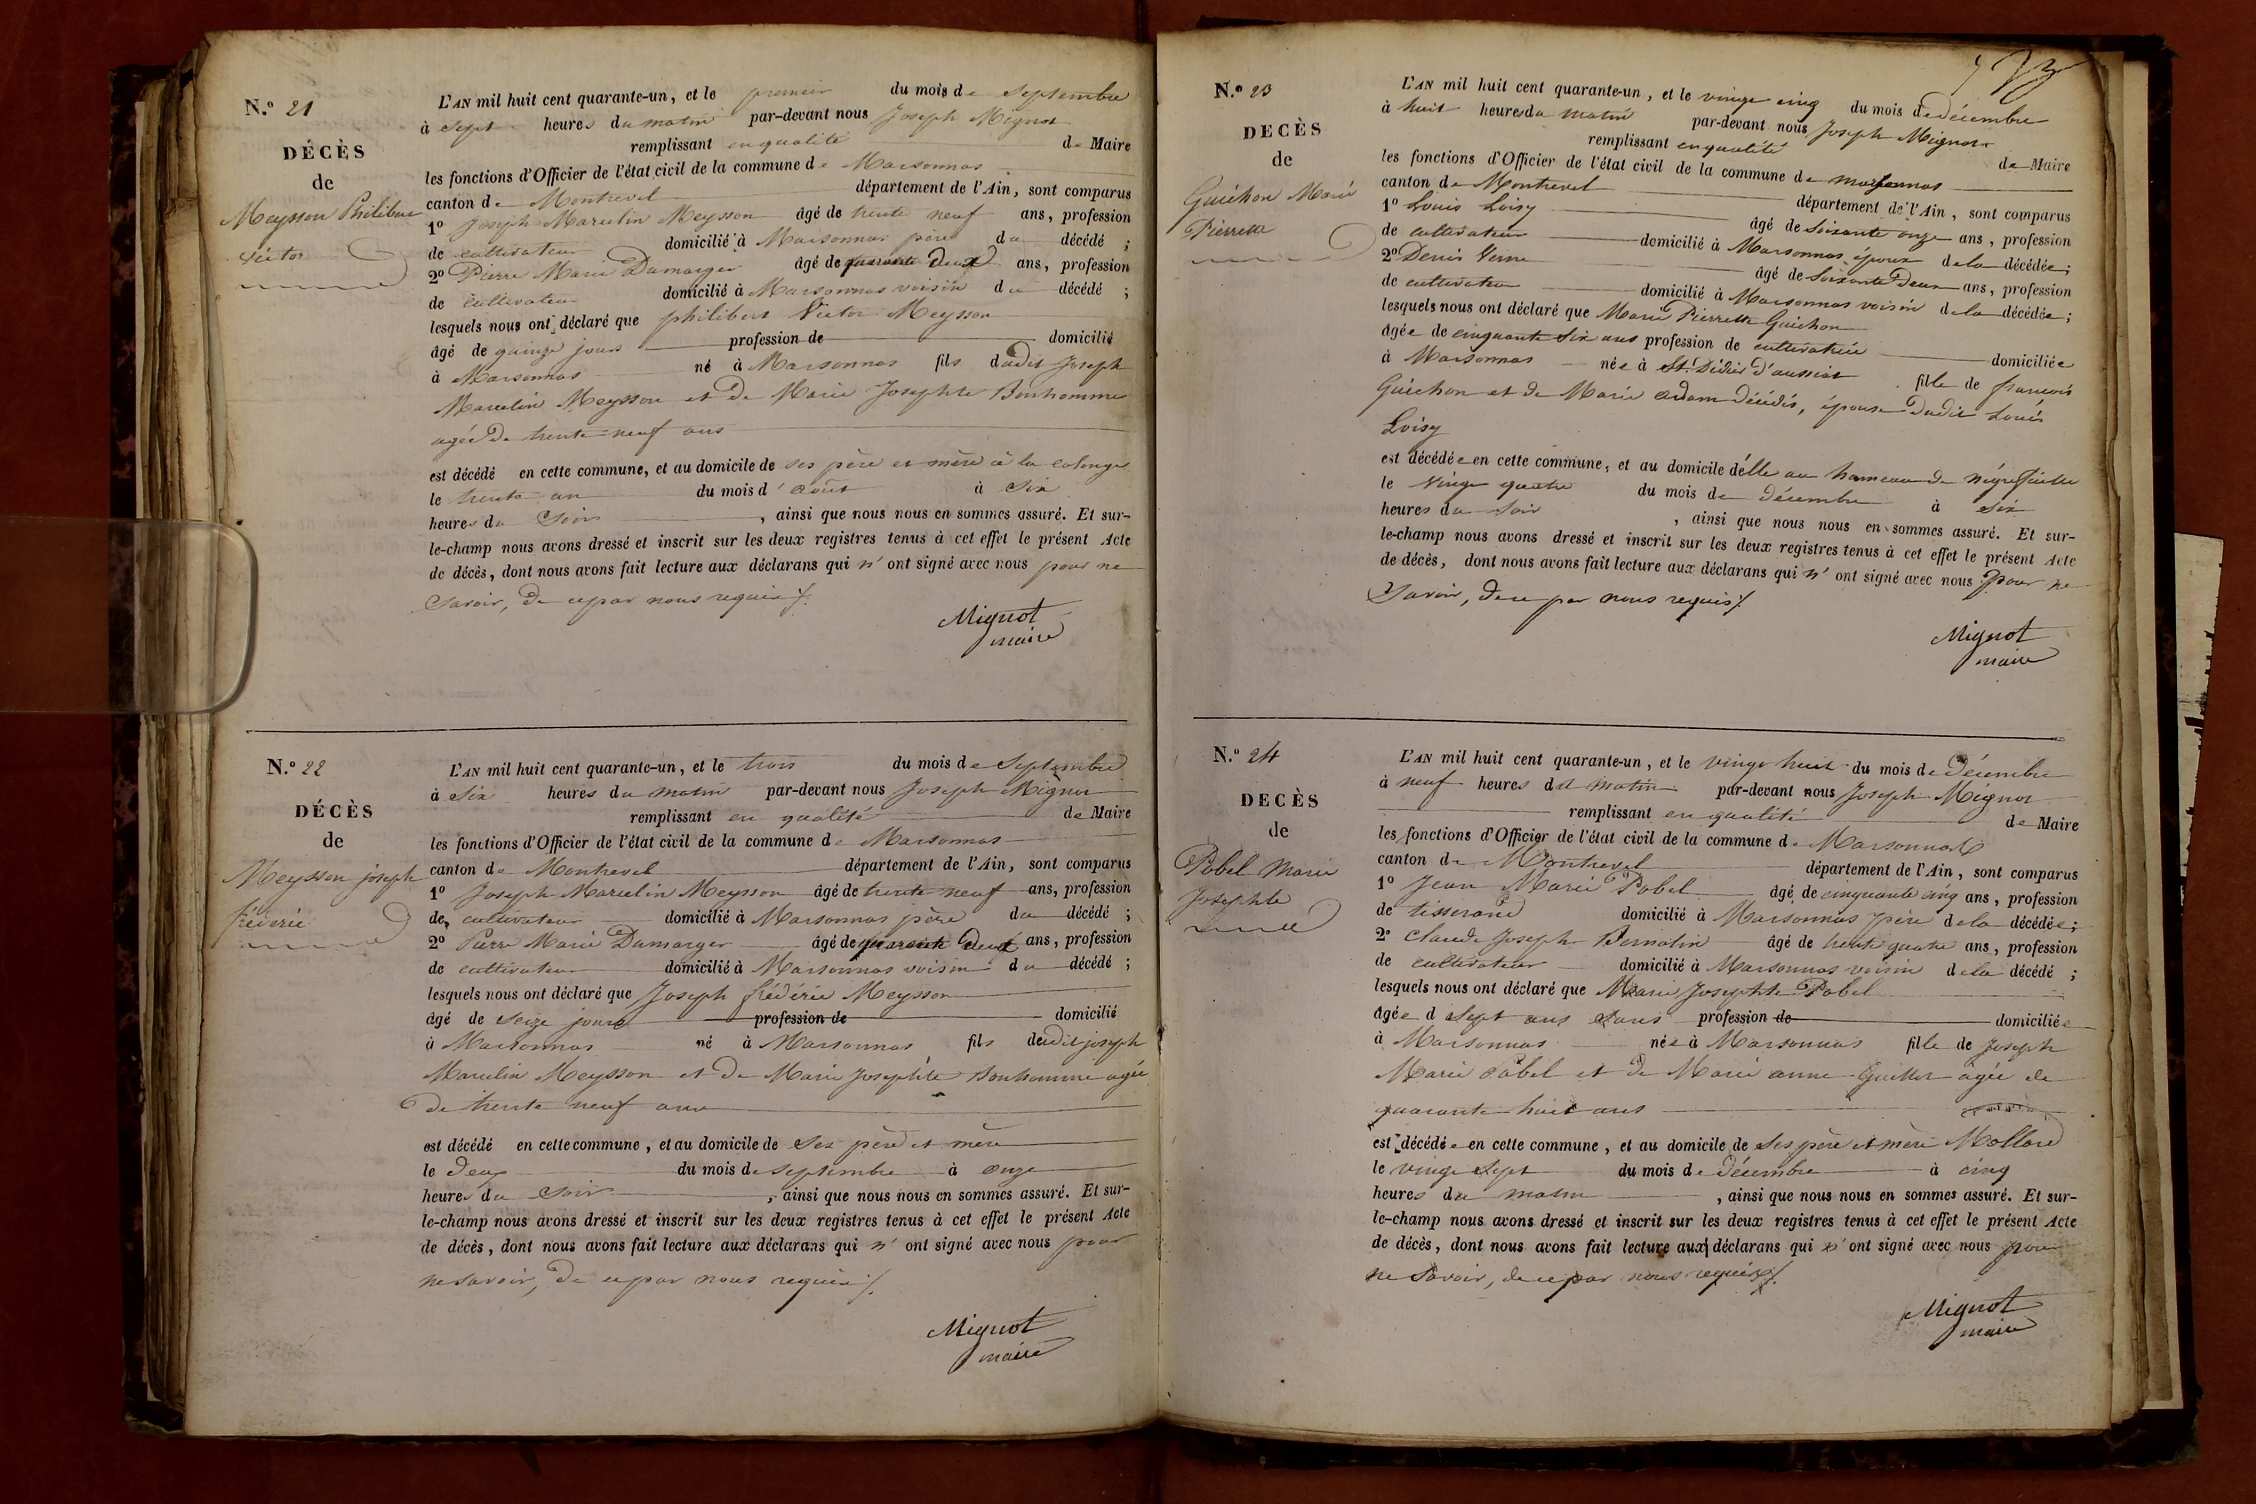 N.° 21
DÉCÈS
de
Meysson Philibert
Victor
L'AN mil huit cent quarante-un, et le premier du mois de Septembre
à sept heures du matin par-devant nous Joseph Mignot
remplissant en qualité de Maire
les fonctions d'Officier de l'état civil de la commune de Marsonnas
canton de Montrevel département de l'Ain, sont comparus
1° Joseph Marcelin Meysson âgé de trente neuf ans, profession
de cultivateur domicilié à Marsonnas père du décédé ;
2° Pierre Marie Damarger âgé de quarante deux ans, profession
de cultivateur domicilié à Marsonnas voisin du décédé ;
lesquels nous ont déclaré que philibert Victor Meysson
âgé de quinze jours profession de domicilié
à Marsonnas né à Marsonnas fils dudit Joseph
Marcelin Meysson et de Marie Josephte Bonhomme
agée de trente neuf ans
est décédé en cette commune, et au domicile de ses père et mère à la colonge
le trente un du mois d'août à six
heures du soir, ainsi que nous nous en sommes assuré. Et sur-
le-champ nous avons dressé et inscrit sur les deux registres tenus à cet effet le présent Acte
de décès, dont nous avons fait lecture aux déclarans qui n'ont signé avec nous pour ne
savoir, de ce par nous requis /.
Mignot
maire
N.° 22
DÉCÈS
de
Meysson joseph
frédéric
L'AN mil huit cent quarante-un, et le trois du mois de Septembre
à six heures du matin par-devant nous Joseph Mignot
remplissant en qualité de Maire
les fonctions d'Officier de l'état civil de la commune de Marsonnas
canton de Montrevel département de l'Ain, sont comparus
1° Joseph Marcelin Meysson âgé de trente neuf ans, profession
de cultivateur domicilié à Marsonnas père du décédé ;
2° Pierre Marie Damarger âgé de quarante deux ans, profession
de cultivateur domicilié à Marsonnas voisin du décédé ;
lesquels nous ont déclaré que Joseph frédéric Meysson
âgé de seize jours profession de domicilié
à Marsonnas né à Marsonnas fils dudit joseph
Marcelin Meysson et de Marie Josephte Bonhomme agée
de trente neuf ans
est décédé en cette commune, et au domicile de ses père et mère
le deux du mois de septembre à onze
heures du soir, ainsi que nous nous en sommes assuré. Et sur-
le-champ nous avons dressé et inscrit sur les deux registres tenus à cet effet le présent Acte
de décès, dont nous avons fait lecture aux déclarans qui n'ont signé avec nous pour
ne savoir, de ce par nous requis /.
Mignot
maire
N.° 23
DECÈS
de
Guichon Marie
Pierrette
L'AN mil huit cent quarante-un, et le vingt cinq du mois de décembre
à huit heures du matin par-devant nous Joseph Mignot
remplissant en qualité de Maire
les fonctions d'Officier de l'état civil de la commune de marsonnas
canton de Montrevel département de l'Ain, sont comparus
1° Louis Loisy âgé de soixante onze ans, profession
de cultivateur domicilié à Marsonnas époux de la décédée ;
2° Denis Verne âgé de soixante deux ans, profession
de cultivateur domicilié à Marsonnas voisin de la décédée ;
lesquels nous ont déclaré que Marie Pierrette Guichon
âgée de cinquante six ans profession de cultivatrice domiciliée
à Marsonnas née à St. Didier d'aussiat fille de francois
Guichon et de Marie adam décédés, épouse dudit Louis
Loisy
est décédée en cette commune, et au domicile d'elle au hameau de
le vingt quatre du mois de décembre à six
heures du soir, ainsi que nous nous en sommes assuré. Et sur-
le-champ nous avons dressé et inscrit sur les deux registres tenus à cet effet le présent Acte
de décès, dont nous avons fait lecture aux déclarans qui n'ont signé avec nous pour ne
savoir, de ce par nous requis /.
Mignot
maire
N.° 24
DECÈS
de
Pobel Marie
Josephte
L'AN mil huit cent quarante-un, et le vingt huit du mois de décembre
à neuf heures du matin par-devant nous Joseph Mignot
remplissant en qualité de Maire
les fonctions d'Officier de l'état civil de la commune de Marsonnas
canton de Montrevel département de l'Ain, sont comparus
1° Jean Marie Pobel âgé de cinquante cinq ans, profession
de tisserand domicilié à Marsonnas père de la décédée ;
2° Claude Joseph Bernolin âgé de trente quatre ans, profession
de cultivateur domicilié à Marsonnas voisin de la décédé ;
lesquels nous ont déclaré que Marie Josephte Pobel
âgée d sept ans sans profession de domiciliée
à Marsonnas née à Marsonnas fille de Joseph
Marie Pobel et de Marie anne Guillot âgée de
quarante huit ans
est décédée en cette commune, et au domicile de ses père et mère Mollard
le vingt sept du mois de décembre à cinq
heures du matin, ainsi que nous nous en sommes assuré. Et sur-
le-champ nous avons dressé et inscrit sur les deux registres tenus à cet effet le présent Acte
de décès, dont nous avons fait lecture aux déclarans qui n'ont signé avec nous pour
ne savoir, de ce par nous requis /.
Mignot
maire